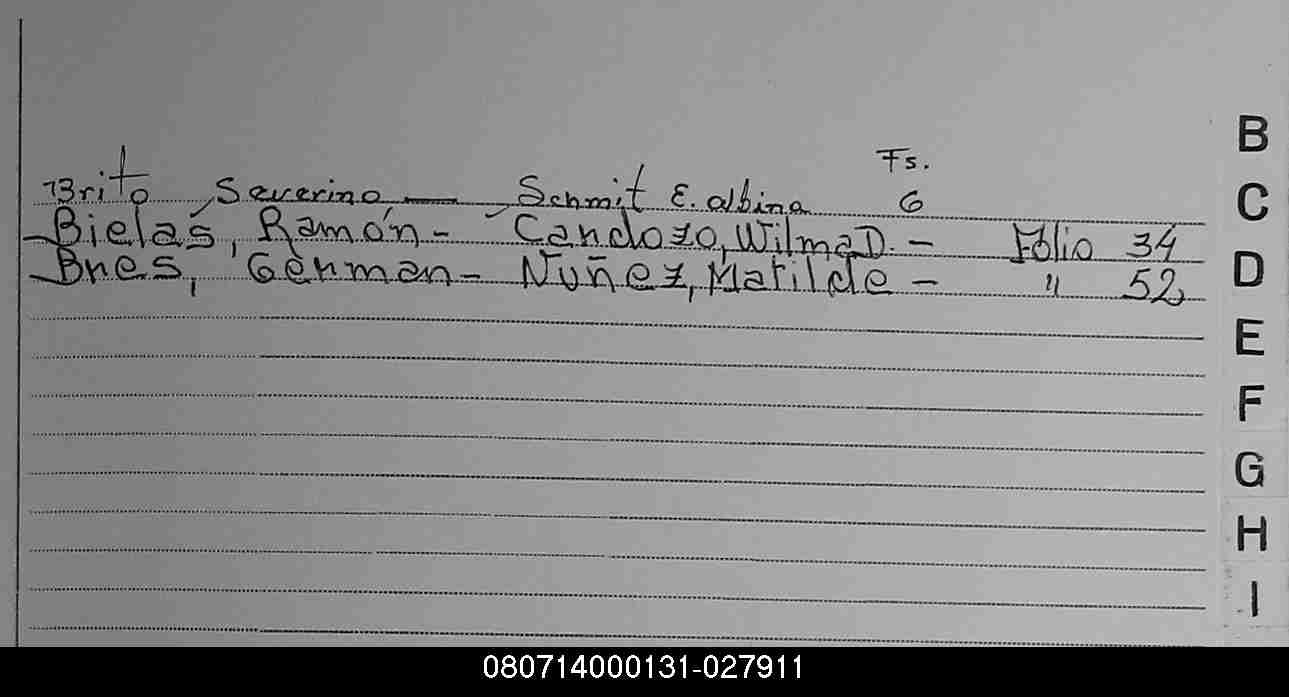 Fs.
Brito, Severino — Schmit E. albina 6
Bielas, Ramón - Candozo, Wilma D. - Folio 34
Bnes, Germán - Nuñez, Matilde - " 52
B
C
D
E
F
G
H
I
080714000131-027911